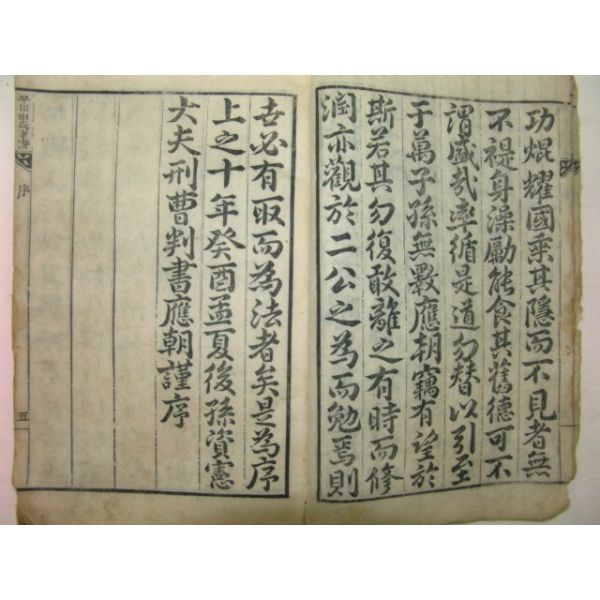 功焜耀國乘其隱而不見者無
不禔身澡勵能食其舊德可不
謂盛哉率循是道勿替以引至
于萬子孫無斁應朝竊有望於
斯若其勿復敢離之有時而修
潤亦觀於二公之為而勉焉則
去必有取而為法者矣是為序
上之十年癸酉孟夏後孫資憲
大夫刑曹判書應朝謹序
平山申氏系譜
序
五